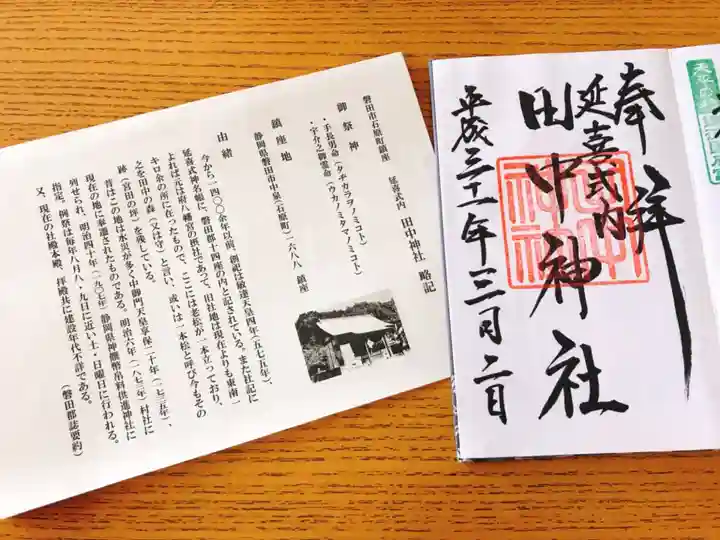 磐田市石原町鎮座　延喜式内　田中神社　略記
御祭神
・手長男命（タチカラヲノミコト）
・宇介之御霊命（ウカノミタマノミコト）
鎮座地
静岡県磐田市中泉（石原町）一六八八　鎮座
由緒
今から一四〇〇余年以前、創祀は敏達天皇四年（五七五年）、
延喜式神名帳に、磐田郡十四座の内と記されている。また社記に
よれば元は府八幡宮の摂社であって、旧社地は現在よりも東南一
キロ余の所に在ったもので、ここには老松が一本立っており、
之を田中の森（又は守）と言い、或いは一本松と呼び今もその
跡（宮田の坪）を残している。
昔はこの地は水災が多く中御門天皇享保二十年（一七三五年）、
現在の地に奉遷されたものである。明治六年（一八七三年）村社に
列せられ、明治四十年（一九〇七年）静岡県神饌幣帛料供進神社に
指定。例祭は毎年八月八、九日に近い土・日曜日に行われる。
又、現在の社殿本殿、拝殿共に建設年代不詳である。
（磐田郡誌要約）
奉拝
延喜式内
田中神社
平成三十一年三月二日